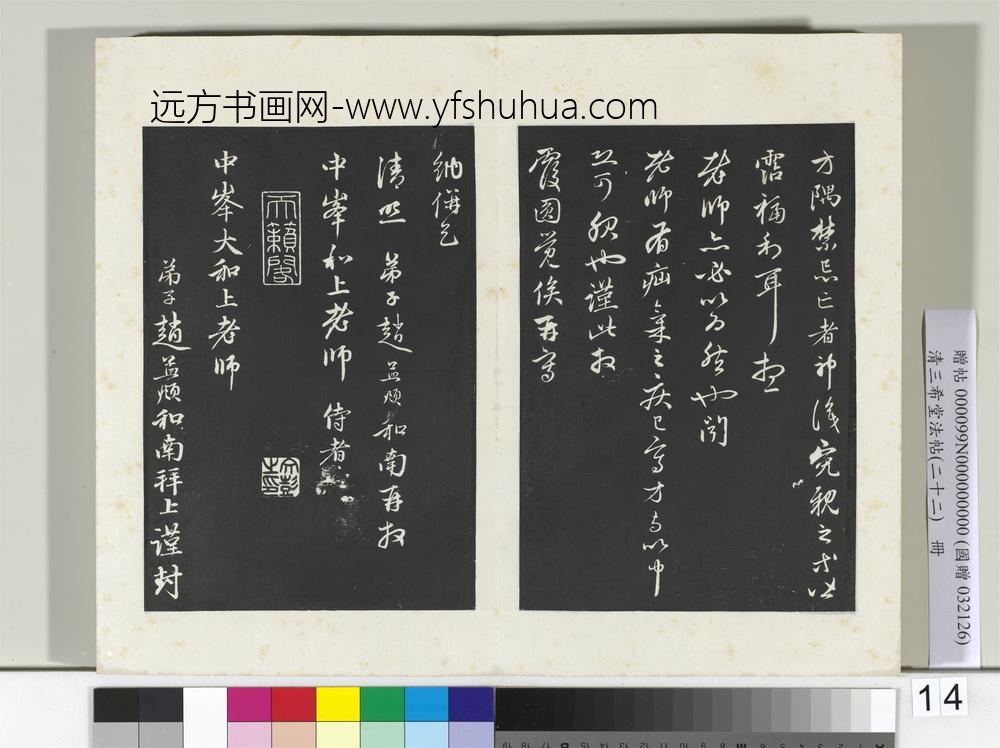 远方书画网-www.yfshuhua.com
方隅禁忌亡者神識冤親之
霑福利耳
老師亦必以為然也聞
老師有疝氣之疾已寫方与以中
可服也謹此
覆圓覺俟再寫
納併乞
清照 弟子趙孟頫和南再拜
中峯和上老師 侍者
天籟閣
文彭之印
中峯大和上老師
弟子趙孟頫和南拜上謹封
贈帖 000099N000000000 (國贈 032126)
清三希堂法帖(二十二) 冊
14